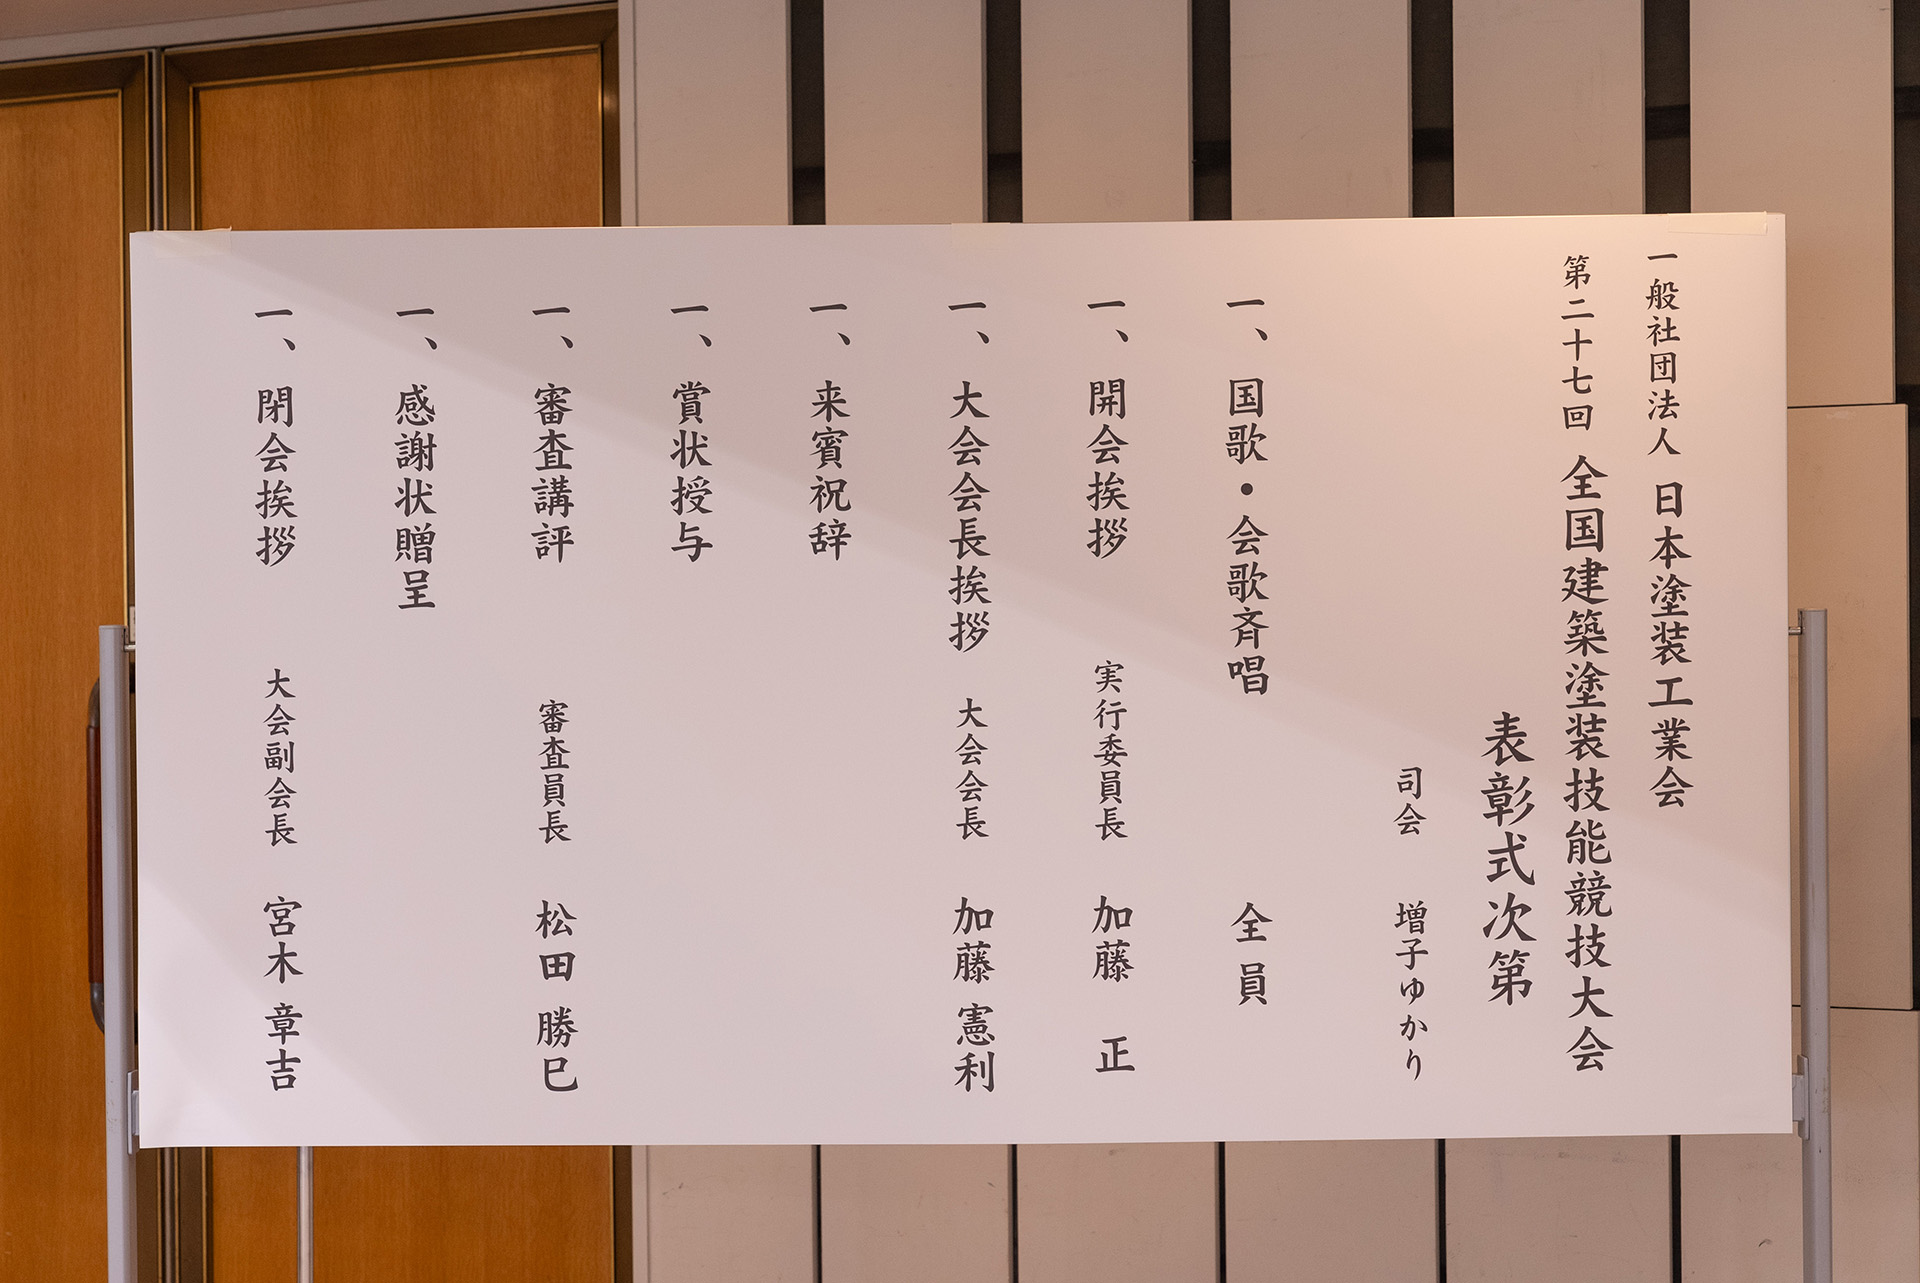 一般社団法人 日本塗装工業会
第二十七回 全国建築塗装技能競技大会
表彰式次第
司会 増子ゆかり
一、国歌・会歌斉唱 全員
一、開会挨拶 実行委員長 加藤 正
一、大会会長挨拶 大会会長 加藤 憲利
一、来賓祝辞
一、賞状授与
一、審査講評 審査員長 松田 勝巳
一、感謝状贈呈
一、閉会挨拶 大会副会長 宮木 章吉